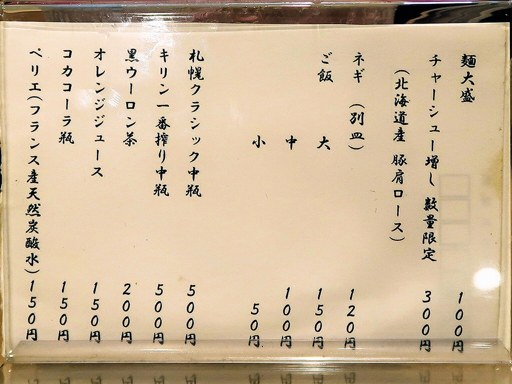 麺大盛 100円
チャーシュー増し 数量限定 300円
(北海道産 豚肩ロース)
ネギ (別皿) 120円
ご飯 大 150円
中 100円
小 50円
札幌クラシック中瓶 500円
キリン一番搾り中瓶 500円
黒ウーロン茶 200円
オレンジジュース 150円
コカコーラ瓶 150円
ペリエ(フランス産天然炭酸水) 150円